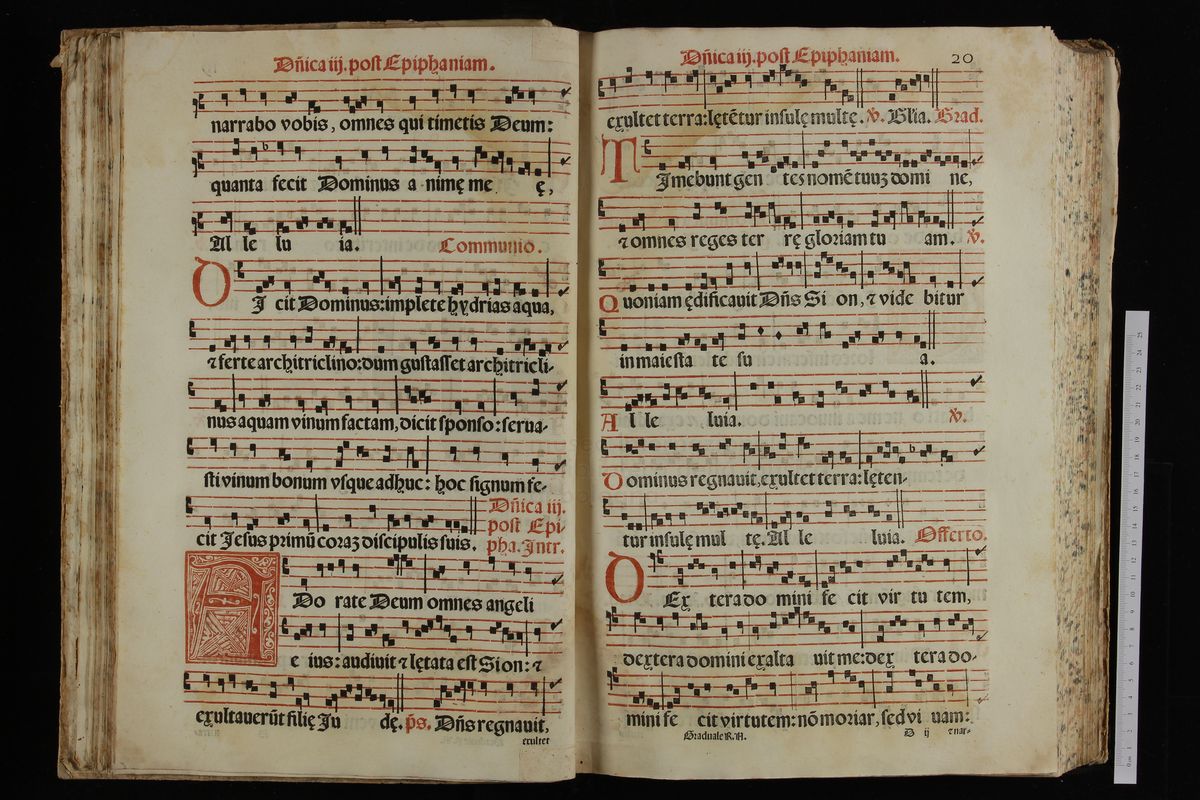 Dñica iij. post Epiphaniam.
narrabo vobis, omnes qui timetis Deum:
quanta fecit Dominus a nimę me ę,
Al le lu ia. Communio.
DI cit Dominus: implete hydrias aqua,
⁊ ferte architriclino: dum gustasset architricli-
nus aquam vinum factam, dicit sponso: serua-
sti vinum bonum vsque adhuc: hoc signum fe-
cit Jesus primũ coraȝ discipulis suis. Dñica iij.
post Epi-
pha. Intr.
ADo rate Deum omnes angeli
e ius: audiuit ⁊ lętata est Sion: ⁊
exultauerũt filię Ju dę. p̃s. Dñs regnauit,
exultet
Dñica iij. post Epiphaniam. 20
exultet terra: lętẽtur insulę multę. ꝟ. Gl̃ia. Grad.
TImebunt gen tes nomẽ tuuȝ domi ne,
⁊ omnes reges ter rę gloriam tu am. ꝟ.
Quoniam ędificauit Dñs Si on, ⁊ vide bitur
in maiesta te su a.
Al le luia. ꝟ.
Dominus regnauit, exultet terra: lęten-
tur insulę mul tę. Al le luia. Offerto.
DEx tera do mini fe cit vir tu tem,
dextera domini exalta uit me: dex tera do-
mini fe cit virtutem: nõ moriar, sed vi uam:
Graduale R. A. D ij ⁊ nar-